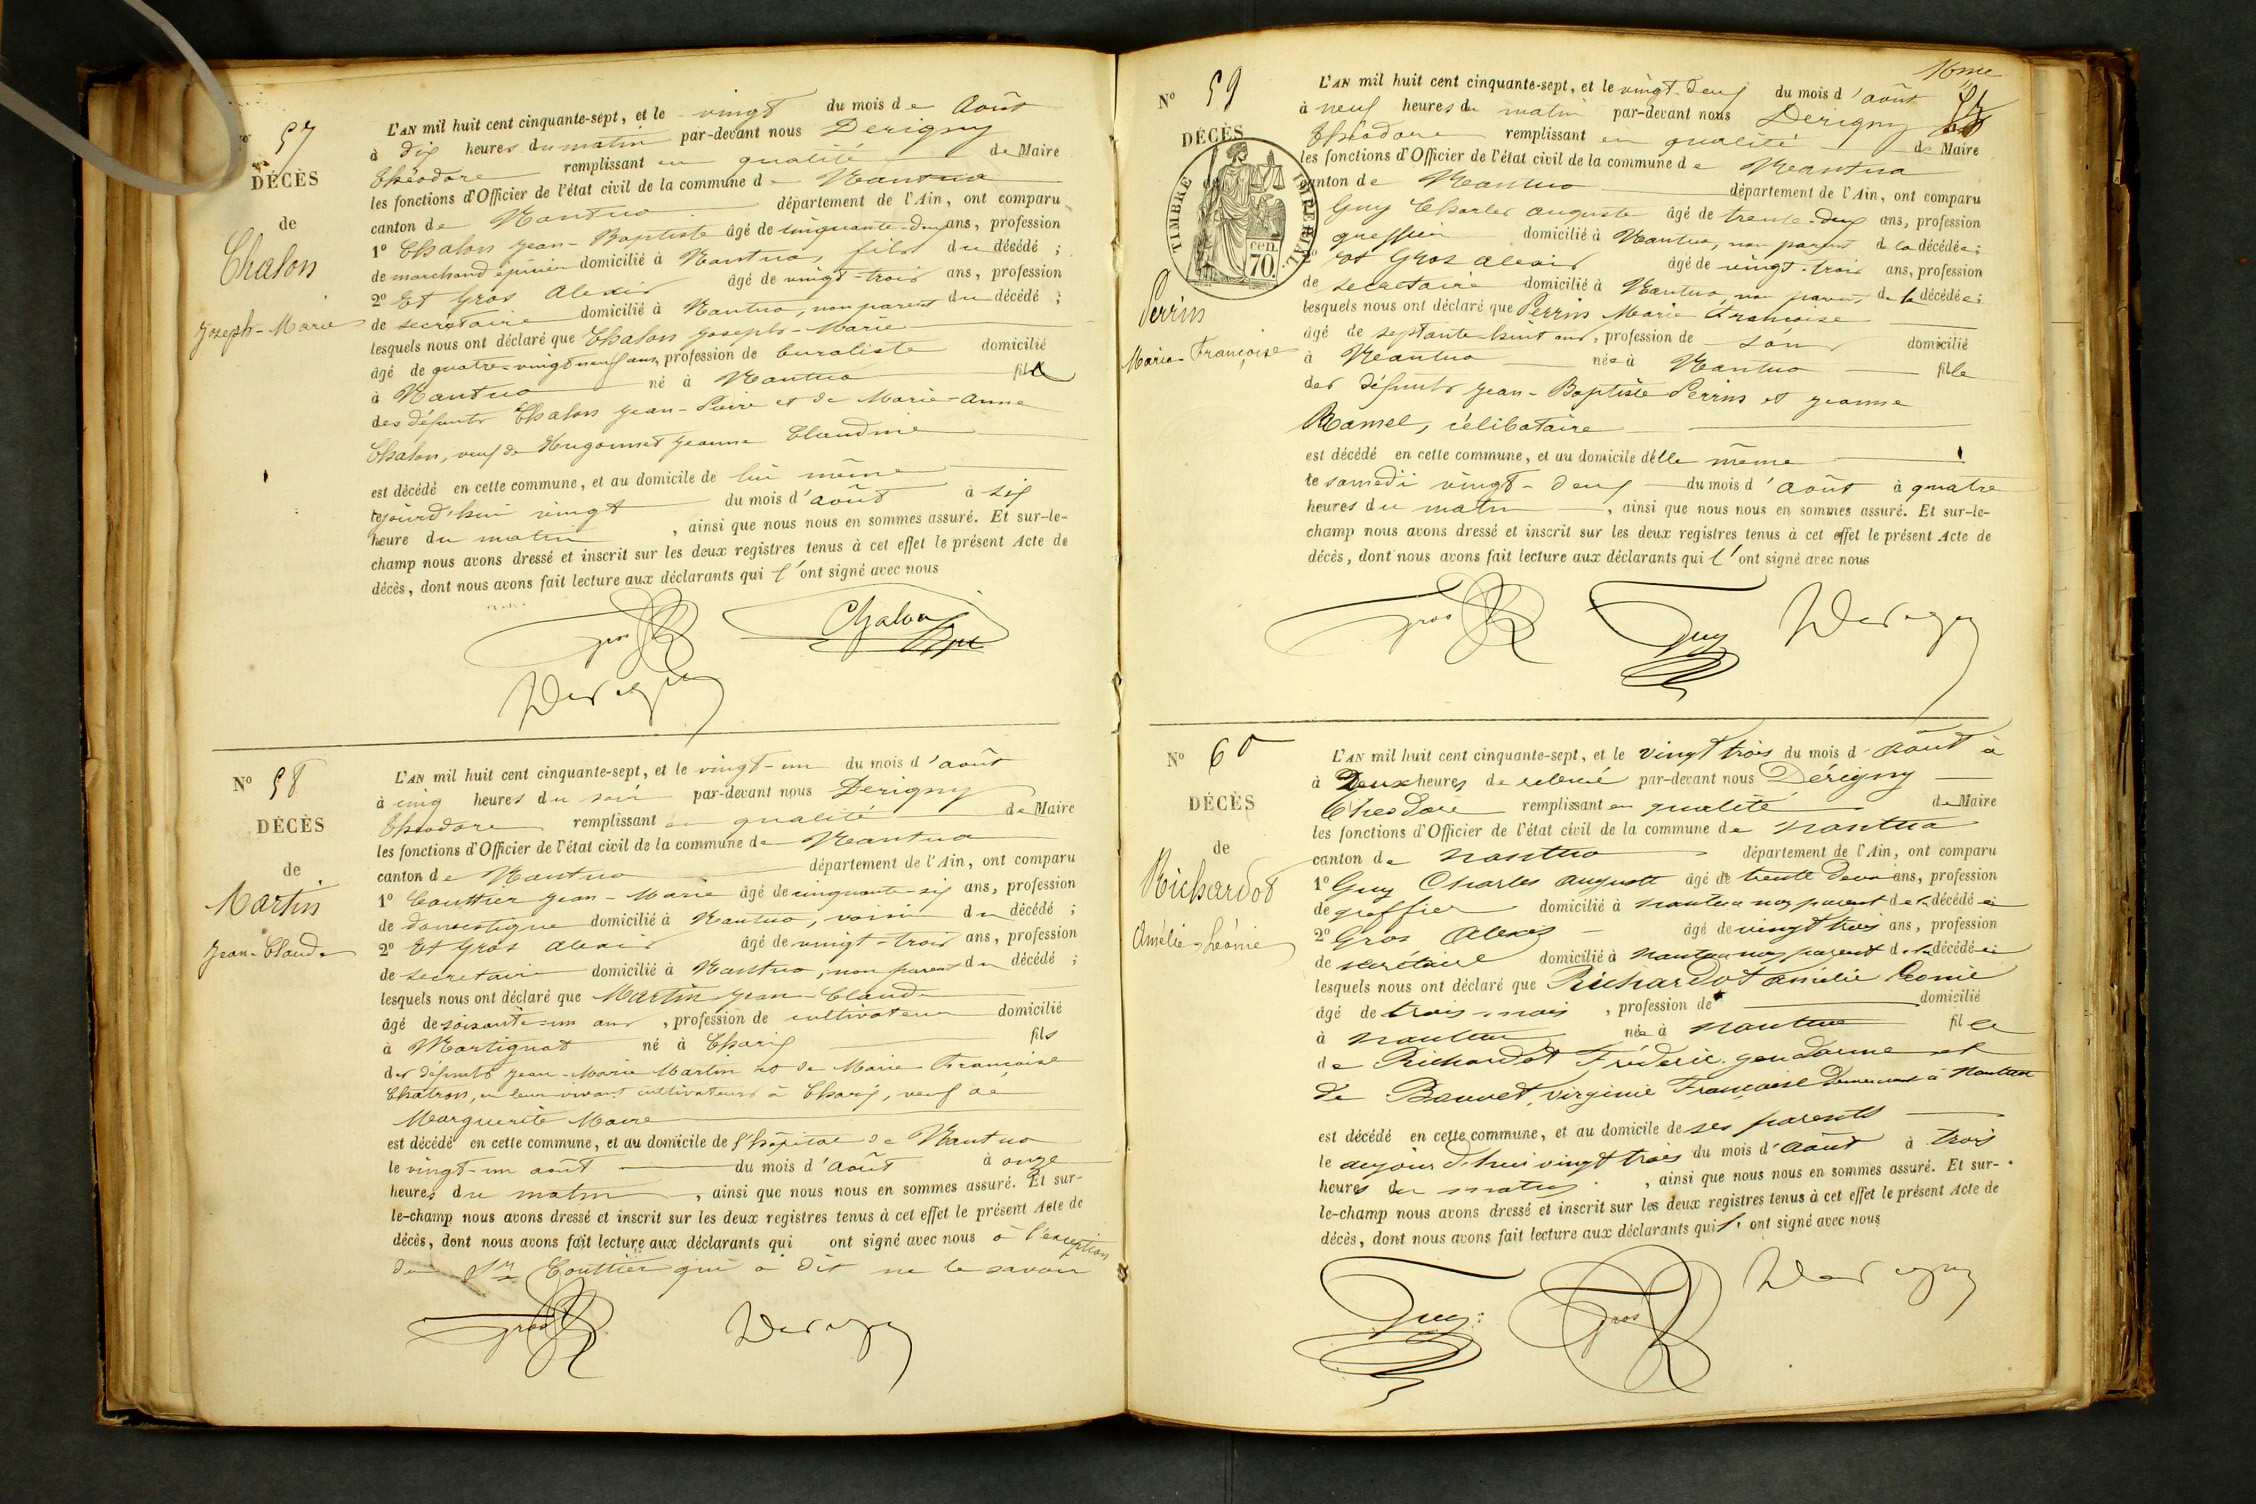 N° 57
DÉCÈS
de
Chalon
Joseph-Marie
L'AN mil huit cent cinquante-sept, et le vingt du mois de Août
à dix heures du matin par-devant nous Derigny
Théodore remplissant en qualité de Maire
les fonctions d'Officier de l'état civil de la commune de Nantua
canton de Nantua département de l'Ain, ont comparu
1° Chalon Jean-Baptiste âgé de cinquante-deux ans, profession
de marchand épicier domicilié à Nantua, fils du décédé ;
2° Et Gros Alexis âgé de vingt-trois ans, profession
de secrétaire domicilié à Nantua, non parent du décédé ;
lesquels nous ont déclaré que Chalon Joseph-Marie
âgé de quatre-vingt neuf ans, profession de buraliste domicilié
à Nantua né à Nantua fils
des défunts Chalon Jean-Pierre et de Marie-Anne
Chalon, veuf de Hugonnet Jeanne Claudine
est décédé en cette commune, et au domicile de lui même
cejourd'hui vingt du mois d'août à six
heure du matin, ainsi que nous nous en sommes assuré. Et sur-le-
champ nous avons dressé et inscrit sur les deux registres tenus à cet effet le présent Acte de
décès, dont nous avons fait lecture aux déclarants qui l'ont signé avec nous
Gros Chalon
Derigny
N° 58
DÉCÈS
de
Martin
Jean-Claude
L'AN mil huit cent cinquante-sept, et le vingt-un du mois d'août
à cinq heures du soir par-devant nous Derigny
Théodore remplissant en qualité de Maire
les fonctions d'Officier de l'état civil de la commune de Nantua
canton de Nantua département de l'Ain, ont comparu
1° Couttier Jean-Marie âgé de cinquante-six ans, profession
de domestique domicilié à Nantua, voisin du décédé ;
2° Et Gros Alexis âgé de vingt-trois ans, profession
de secrétaire domicilié à Nantua, non parent du décédé ;
lesquels nous ont déclaré que Martin Jean-Claude
âgé de soixante-un ans, profession de cultivateur domicilié
à Martignat né à Charix fils
des défunts Jean-Marie Martin et de Marie Françoise
Chatron, en leur vivant cultivateurs à Charix, veuf de
Marguerite Maire
est décédé en cette commune, et au domicile de l'hôpital de Nantua
le vingt-un août du mois d'août à onze
heures du matin, ainsi que nous nous en sommes assuré. Et sur-
le-champ nous avons dressé et inscrit sur les deux registres tenus à cet effet le présent Acte de
décès, dont nous avons fait lecture aux déclarants qui ont signé avec nous à l'exception
du Sr Couttier qui a dit ne le savoir
Gros Derigny
16me
N° 59
DÉCÈS
TIMBRE IMPERIAL
cen. 70.
Perrin
Marie-Françoise
L'AN mil huit cent cinquante-sept, et le vingt-deux du mois d'août
à neuf heures du matin par-devant nous Derigny
Théodore remplissant en qualité de Maire
les fonctions d'Officier de l'état civil de la commune de Nantua
canton de Nantua département de l'Ain, ont comparu
Guy Charles Auguste âgé de trente-deux ans, profession
greffier domicilié à Nantua, non parent de la décédée ;
2° et Gros Alexis âgé de vingt-trois ans, profession
de secrétaire domicilié à Nantua, non parent de la décédée ;
lesquels nous ont déclaré que Perrin Marie Françoise
âgé de septante-huit ans, profession de sans domicilié
à Nantua née à Nantua fille
des défunts Jean-Baptiste Perrin et Jeanne
Ramel, célibataire
est décédé en cette commune, et au domicile d'elle même
le samedi vingt-deux du mois d'août à quatre
heures du matin, ainsi que nous nous en sommes assuré. Et sur-le-
champ nous avons dressé et inscrit sur les deux registres tenus à cet effet le présent Acte de
décès, dont nous avons fait lecture aux déclarants qui l'ont signé avec nous
Gros Guy Derigny
N° 60
DÉCÈS
de
Richardot
Amélie-Léonie
L'AN mil huit cent cinquante-sept, et le vingt trois du mois d'Août à
à Deux heures de relevée par-devant nous Dérigny
Théodore remplissant en qualité de Maire
les fonctions d'Officier de l'état civil de la commune de Nantua
canton de Nantua département de l'Ain, ont comparu
1° Guy Charles Auguste âgé de trente deux ans, profession
de greffier domicilié à Nantua non parent de la décédée
2° Gros Alexis âgé de vingt trois ans, profession
de secrétaire domicilié à Nantua non parent de la décédée
lesquels nous ont déclaré que Richardot Amélie Léonie
âgé de trois mois, profession de domicilié
à Nantua née à Nantua fille
de Richardot Fréderic gendarme et
de Bouvet, Virginie Françoise demeurant à Nantua
est décédé en cette commune, et au domicile de ses parents
le aujourd'hui vingt trois du mois d'Août à trois
heures du matin, ainsi que nous nous en sommes assuré. Et sur-
le-champ nous avons dressé et inscrit sur les deux registres tenus à cet effet le présent Acte de
décès, dont nous avons fait lecture aux déclarants qui l'ont signé avec nous
Guy Gros Derigny